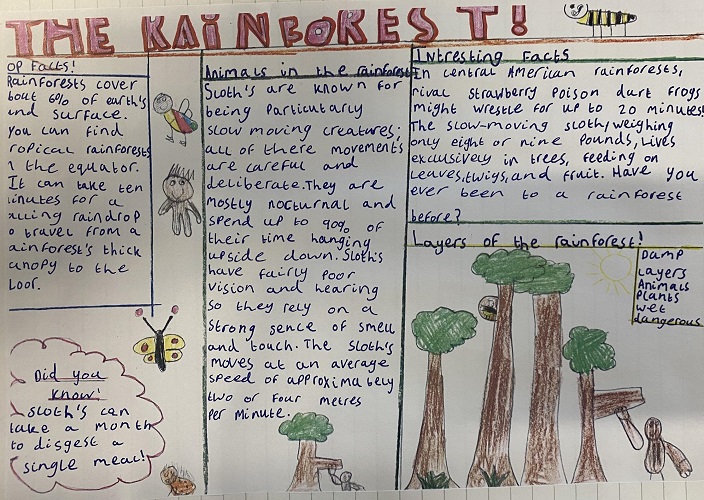 THE RAINFOREST!
OP Facts!
Rainforests cover
bout 6% of earth's
and surface.
You can find
ropical rainforests
n the equator.
It can take ten
inutes for a
alling raindrop
o travel from a
ainforest's thick
anopy to the
loor.
Did you
know:
Sloth's can
take a month
to disgest a
single meal!
Animals in the rainforest
Sloth's are known for
being Particularly
slow moving creatures;
all of there movements
are careful and
deliberate. They are
mostly nocturnal and
spend up to 90% of
their time hanging
upside down. Sloths
have fairly Poor
vision and hearing
so they rely on a
strong sence of smell
and touch. The sloth's
moves at an average
speed of approximately
two or four metres
Per minute.
Intresting Facts
In central Amerian rainforests,
rival strawberry Poison dart frogs
might wrestle for up to 20 minutes!
The slow-moving sloth, weighing
only eight or nine Pounds, lives
excluxively in trees, feeding on
leaves, twigs, and fruit. Have you
ever been to a rainforest
before?
Layers of the rainforest!
Damp
Layers
Animals
Plants
wet
dangerous